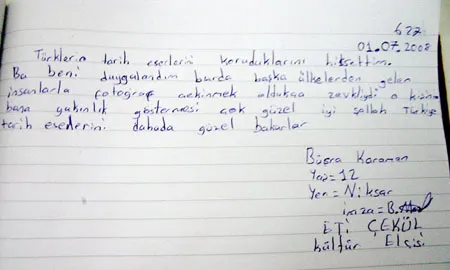 622
01.07.2008
Türklerin tarih eserlerin koruduklarını hissettim.
Bu beni duygulandım burda başka ülkelerden gelen
insanlarla fotograf cekinmek oldukaa zevkliydi o
bana yakınlık göstermesi çok güzel iyi şallah Türkiye
tarih eserlerini dahada güzel bakarlar
Büşra Karaman
Yaş=12
Yer=Niksar
imza=B.
ETİ ÇEKÜL
kültür Elçisi